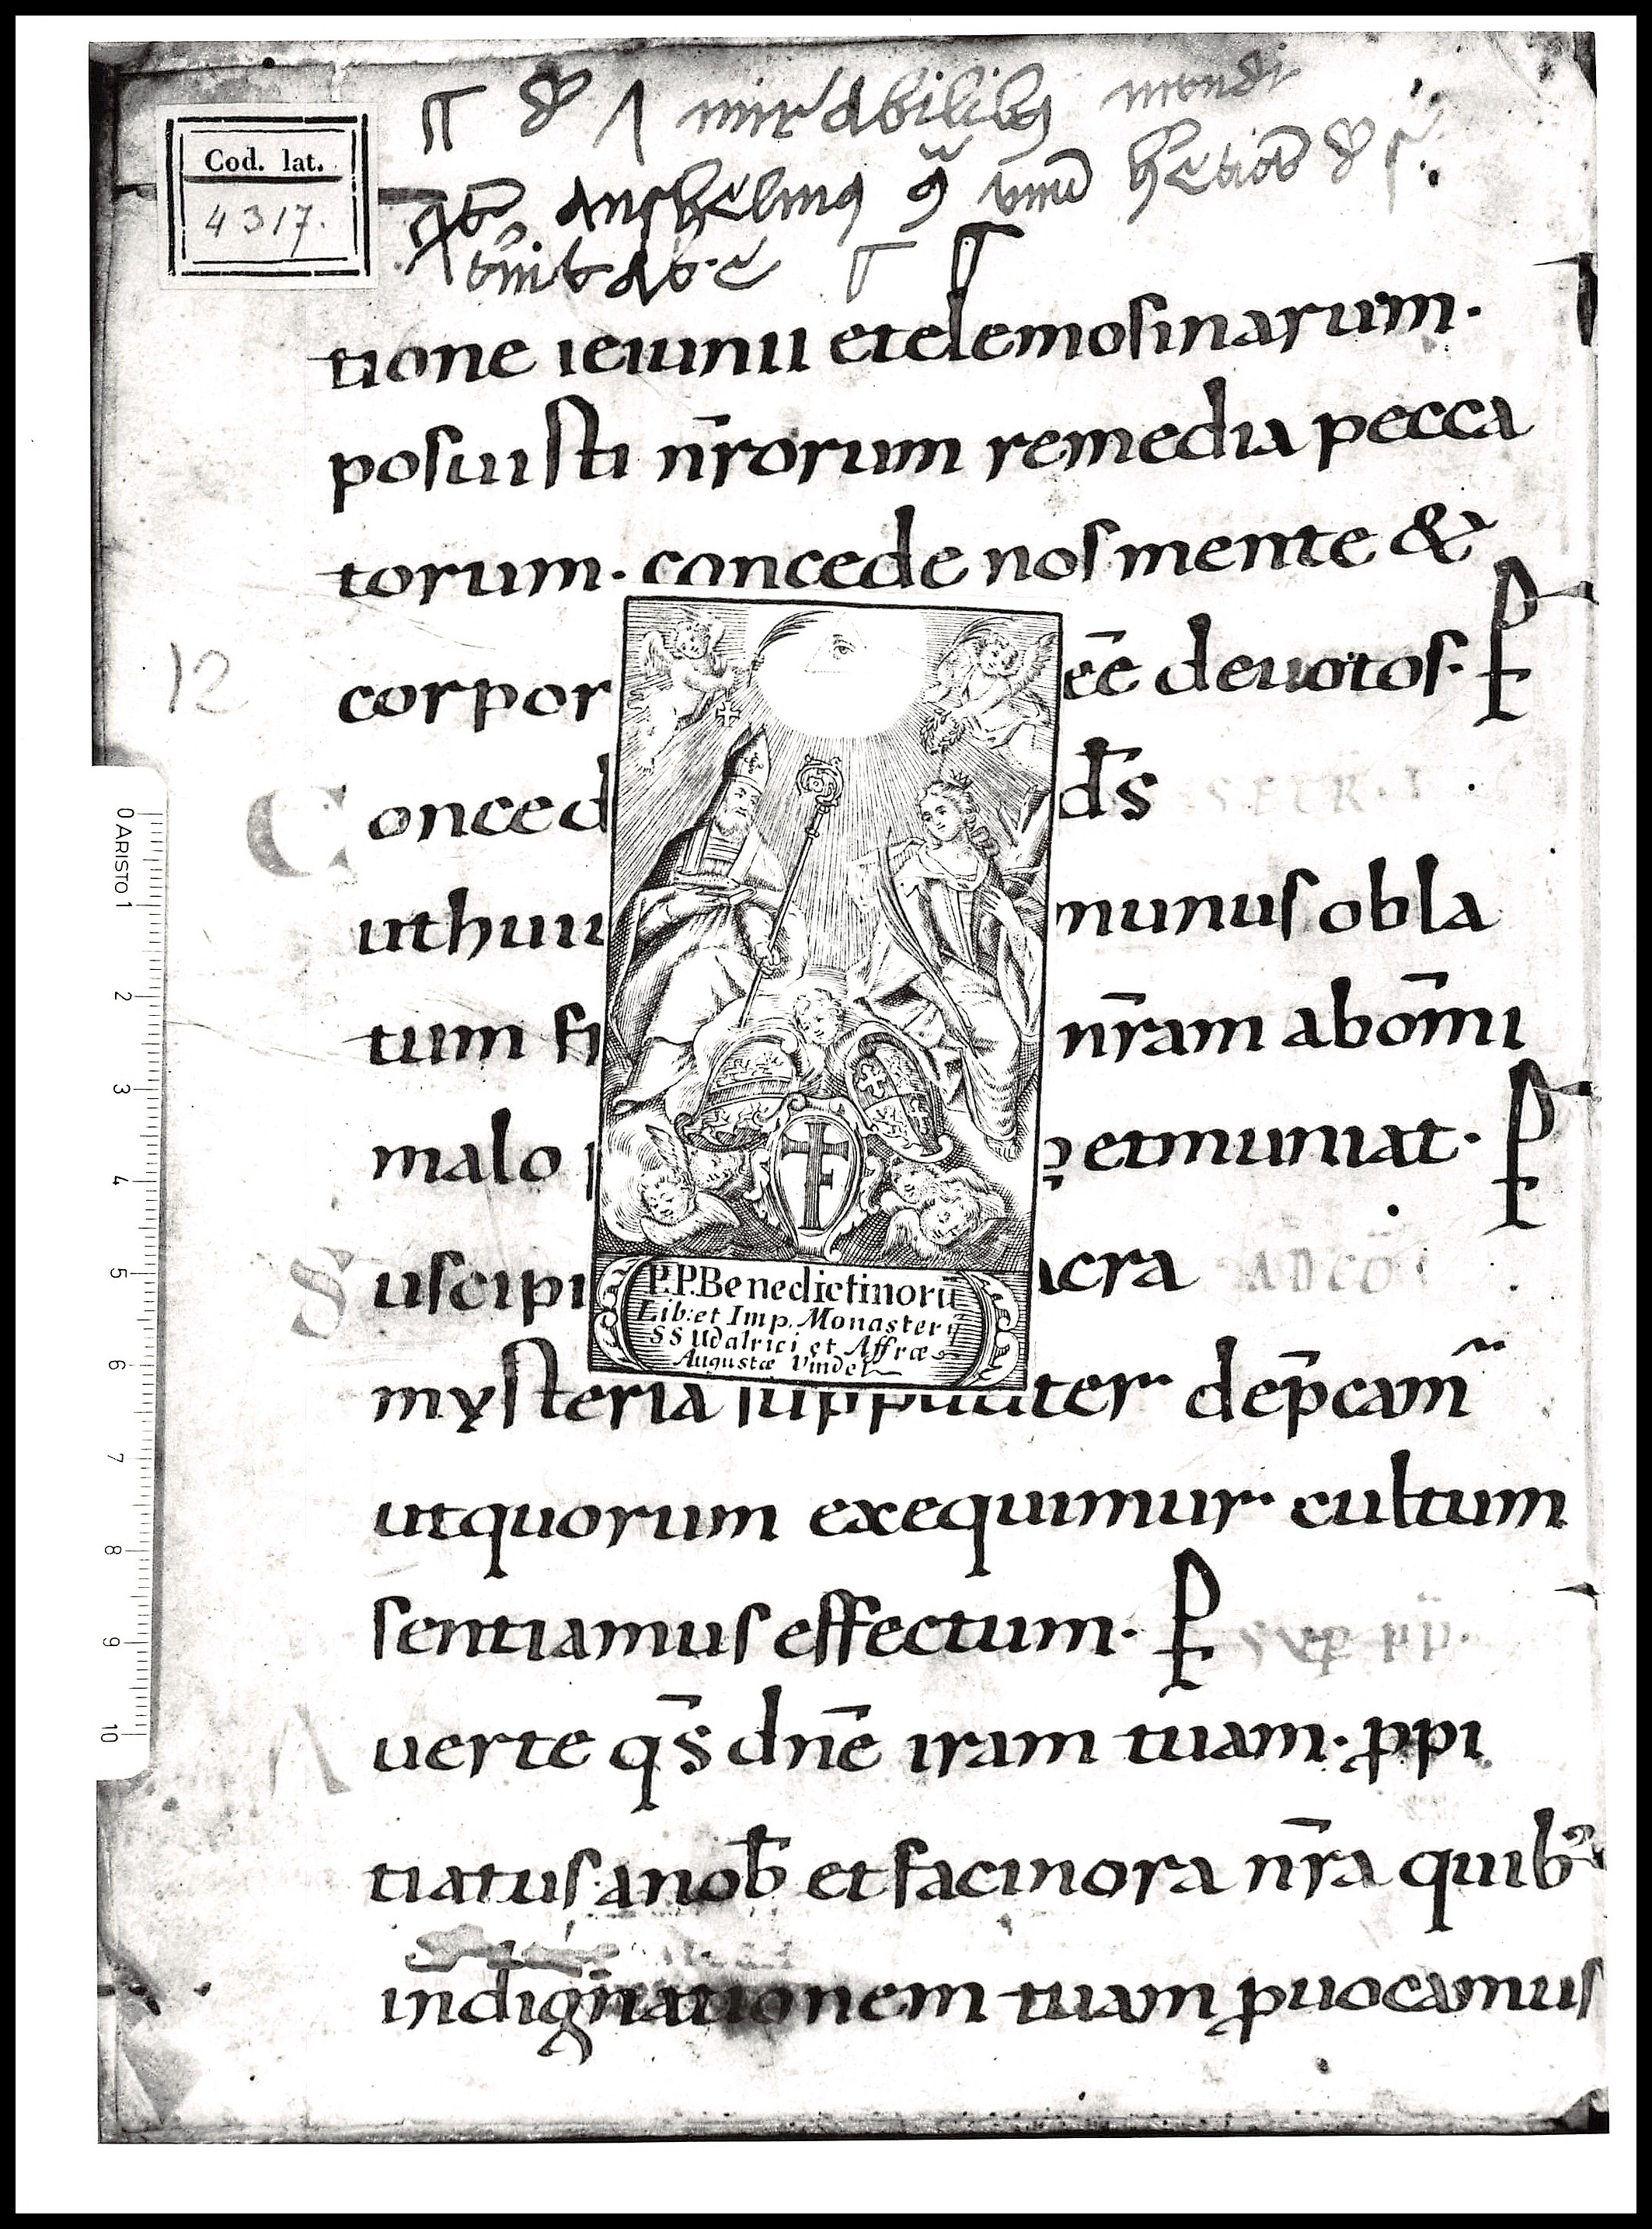 mirabilibꝫ mundi
Cod. lat.
4317.
Anshelmꝫ
tione ieiunii etelemosinarum·
posuisti nr̄orum remedia pecca
torum· concede nos mente &
12
corpor eē deuotos·
Conced d̄s SECR·
uthui munus obla
tum fi nr̄am abom̄i
malo etmuniat·
Suscipi acra AD CŌ
mysteria suppliciter dep̄cam̄
utquorum exequimur cultum
sentiamus effectum· SUꝑ pp̄.
Auerte qs̄ dnē iram tuam· ꝓpi
tiatus anob̄ et facinora nr̄a quibꝰ
indignationem tuam ꝓuocamus
P.P.Benedictinorū
Lib: et Imp. Monasterij
SS Udalrici et Affræ
Augustæ Vindel
0 ARISTO 1
2
3
4
5
6
7
8
9
10